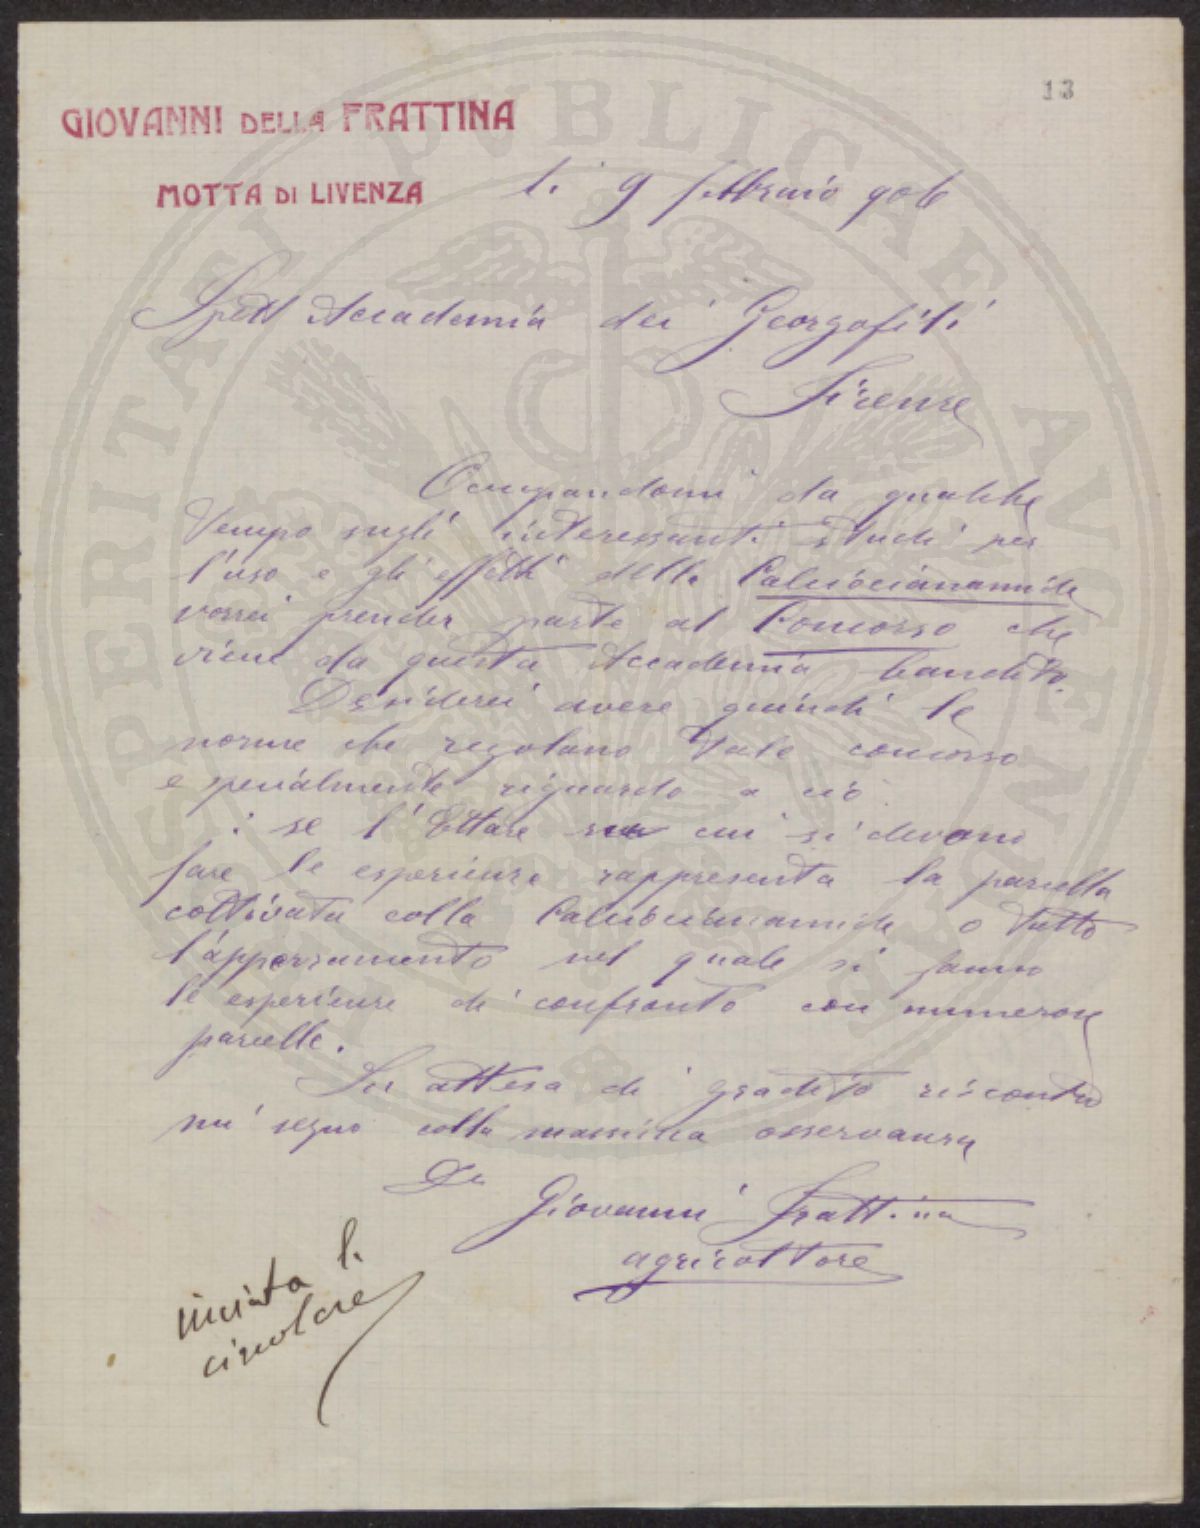 13
GIOVANNI DELLA FRATTINA
MOTTA DI LIVENZA
li 9 febbraio 906
Spett Accademia dei Georgofili
Firenze
Occupandomi da qualche
tempo sugli interessanti studi per
l'uso e gli effetti della Calciocianamide
vorrei prender parte al Concorso che
viene da questa Accademia bandito.
Desiderei avere quindi le
norme che regolano tale concorso
e specialmente riguardo a ciò
: se l'Ettare su cui si devono
fare le esperienze rappresenta la parcella
coltivata colla Calciocianamide o tutto
l'appezzamento nel quale si fanno
le esperienze di confronto con numerose
parcelle.
In attesa di gradito riscontro
mi segno colla massima osservanza
Giovanni Frattina
agricoltore
inviata li
circolare
SPERITATI PVBLICAE AVGENDAE